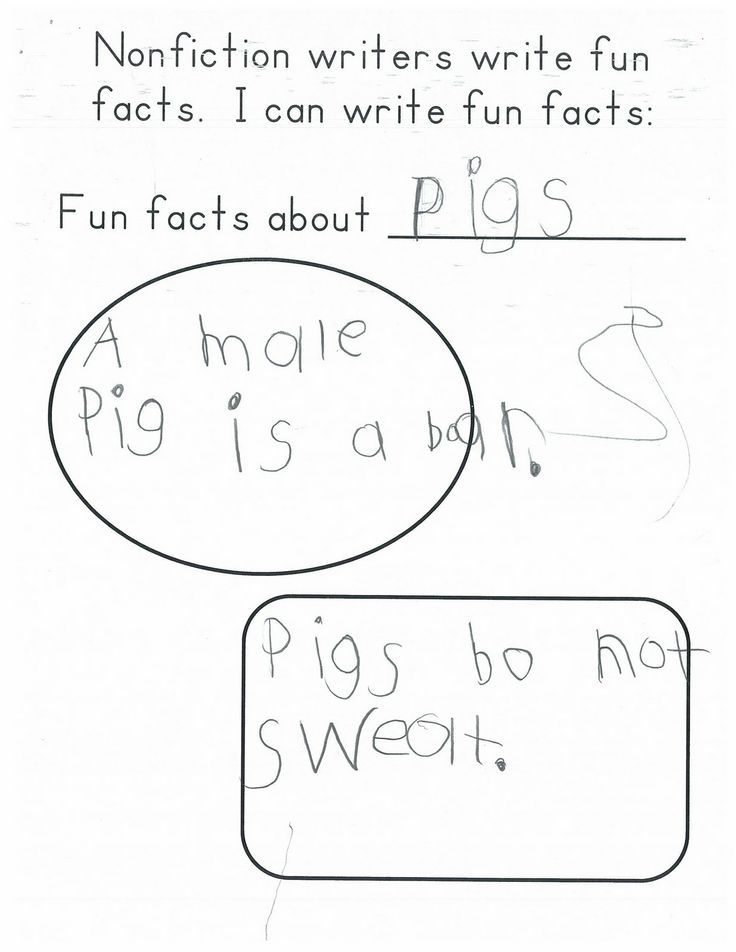 Nonfiction writers write fun
facts. I can write fun facts:
Fun facts about pigs
A male
Pig is a bar.
Pigs bo not
sweat.